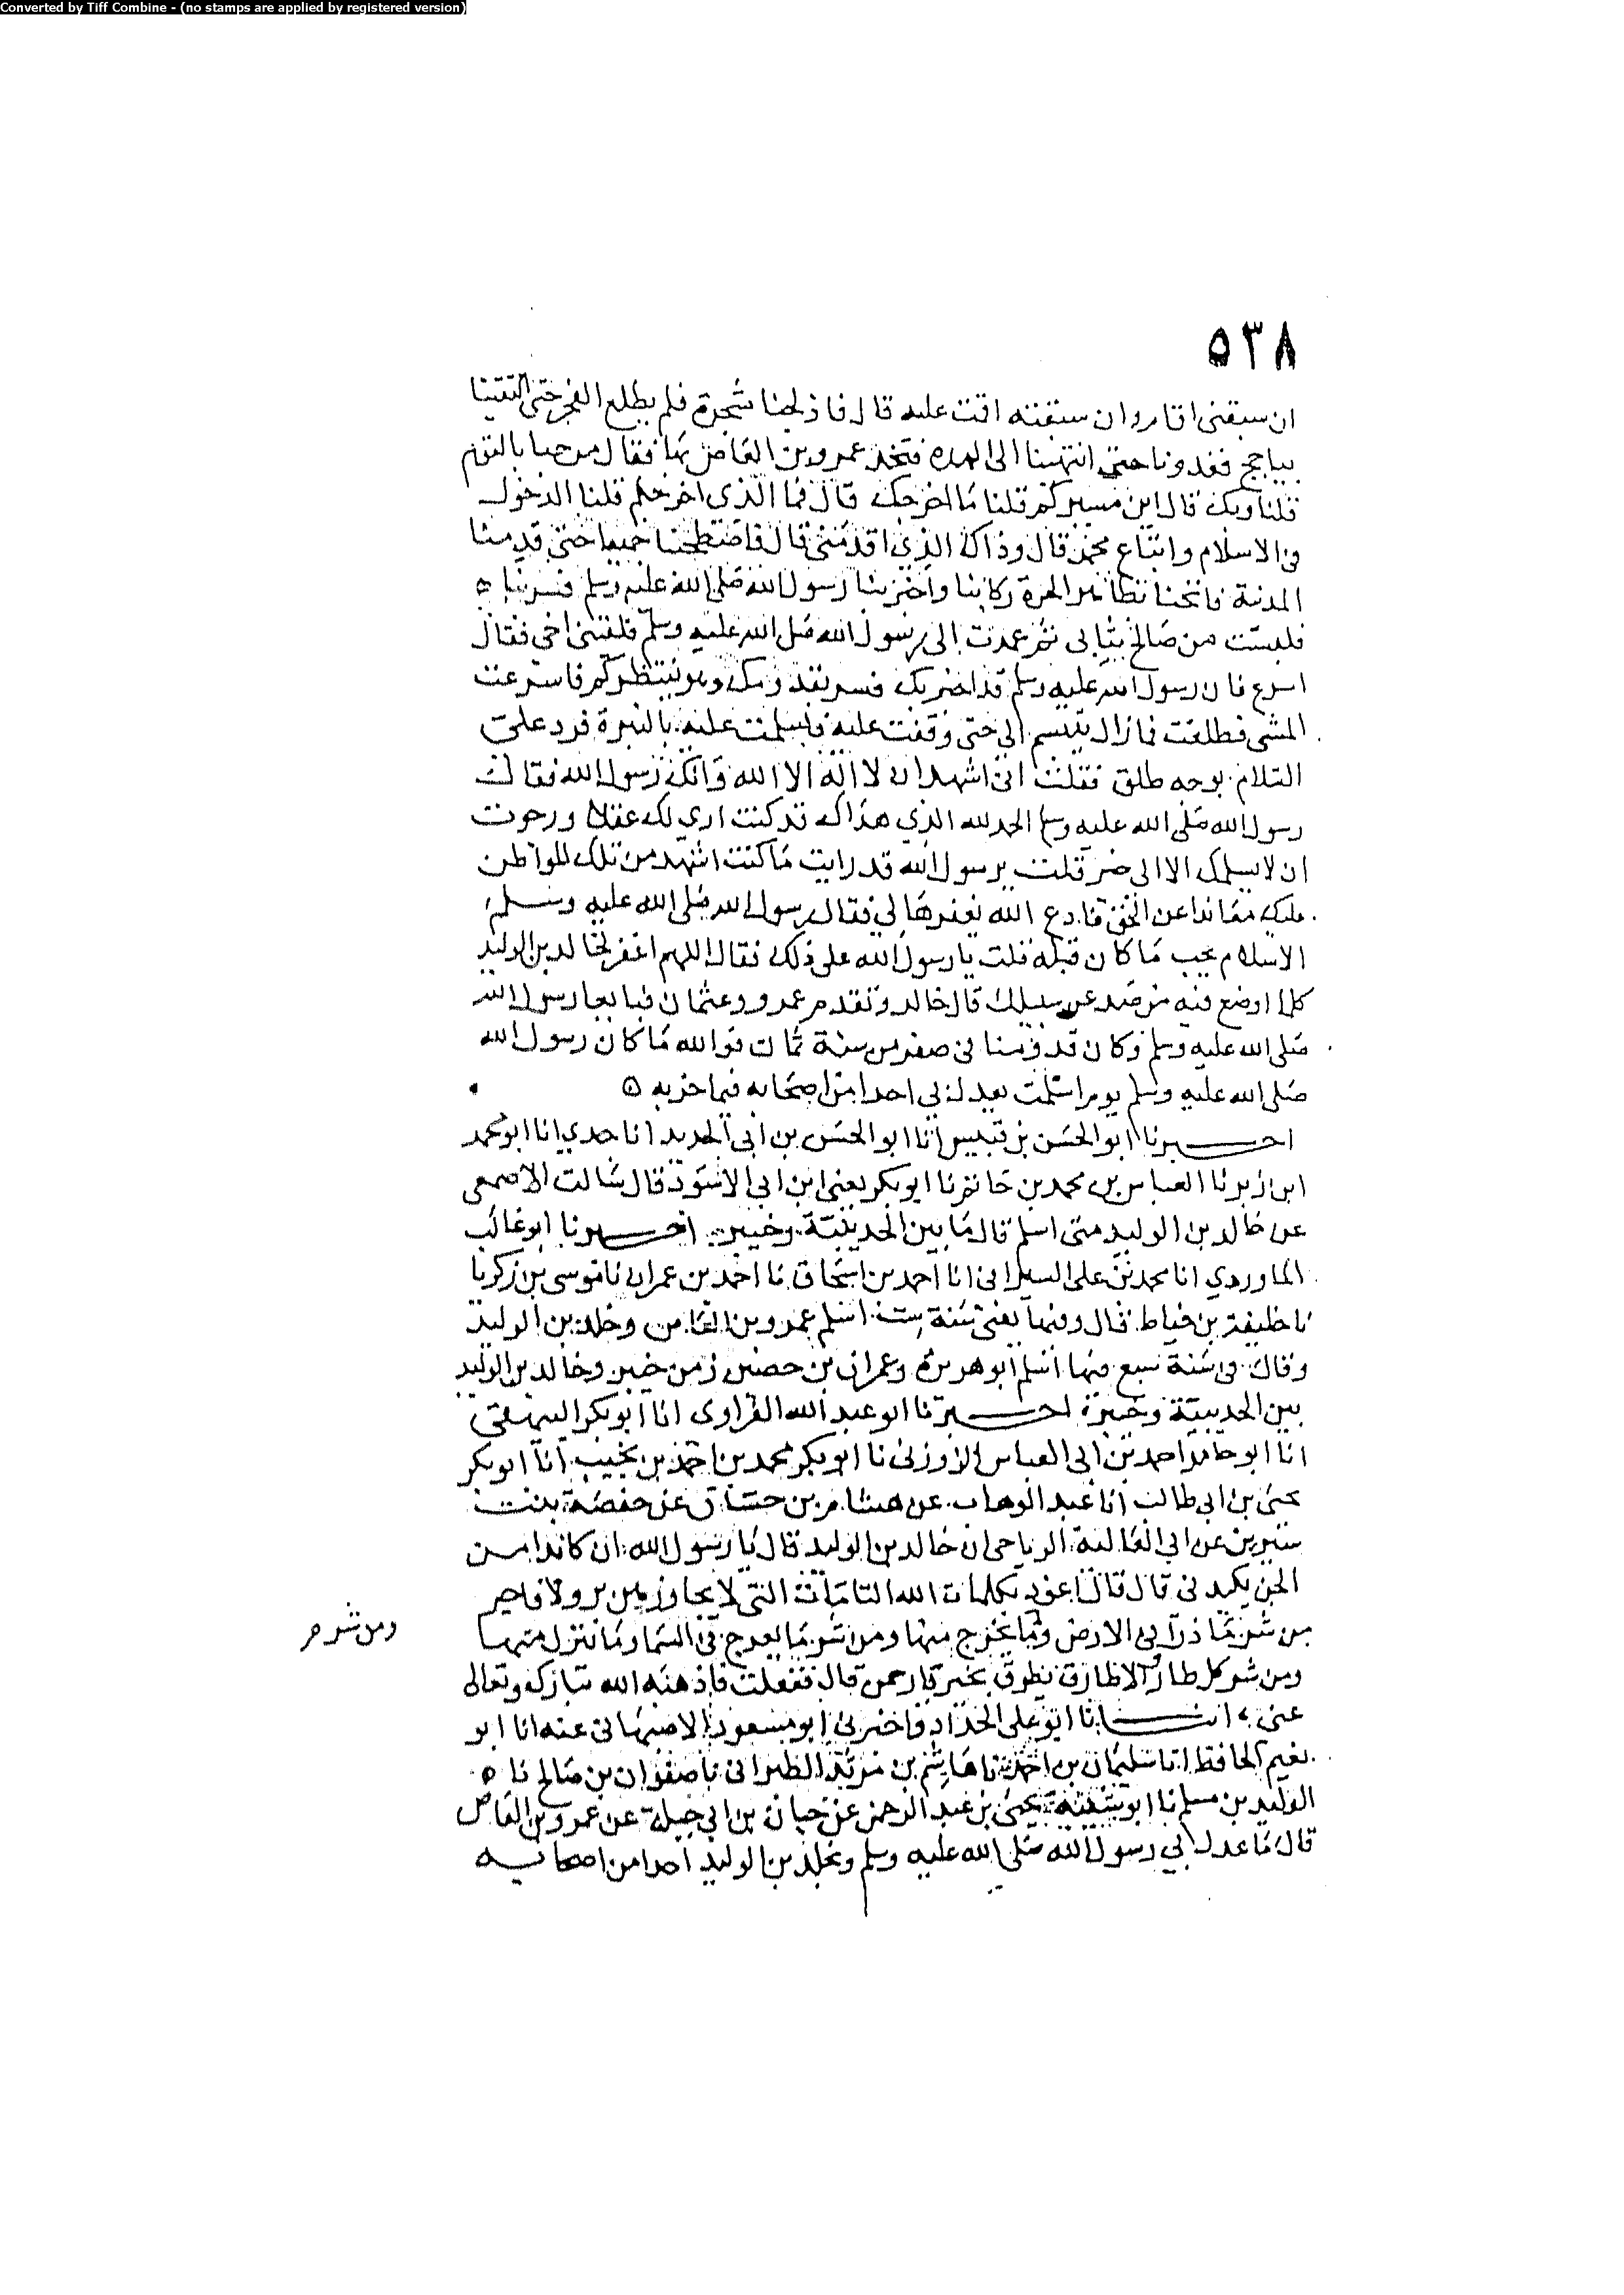 Converted by Tiff Combine - (no stamps are applied by registered version)
٥٣٨
ان سبقنى اقام وان سبقته اقمت عليه قال فادلجنا سحرة فلم يطلع الفجر حتى التقينا
بياجج فغدونا حتى انتهينا الى الهده فنجد عمرو بن العاص بها فقال مرحبا بالقوم
قلنا وبك قال اين مسيركم قلنا ما اخرجك قال فما الذى اخرجكم قلنا الدخول
فى الاسلام واتباع محمد قال وذاك الذى اقدمنى قال فاصطحبنا جميعا حتى قدمنا
المدينة فانخنا بظاهر الحرة ركابنا واخبر بنا رسول الله صلى الله عليه وسلم فسر بنا ه
فلبست من صالح ثيابى ثم عمدت الى رسول الله صلى الله عليه وسلم فلقينى اخى فقال
اسرع فان رسول الله عليه وسلم قد اخبر بك فسر بقدومك وهو ينتظركم فاسرعت
المشى فطلعت فما زال يتبسم الى حتى وقفت عليه فسلمت عليه بالنبوة فرد على
السلام بوجه طلق فقلت انى اشهد ان لا اله الا الله وانك رسول الله فقال
رسول الله صلى الله عليه وسلم الحمد لله الذى هداك قد كنت ارى لك عقلا ورجوت
ان لا يسلمك الا الى خير قلت يرسول الله قد رايت ما كنت اشهد من تلك المواطن
عليك معاندا عن الحق فادع الله يغفرها لى فقال رسول الله صلى الله عليه وسلم
الاسلام يجب ما كان قبله قلت يا رسول الله على ذلك فقال اللهم اغفر لخالد بن الوليد
كلما اوضع فيه من صد عن سبيلك قال خالد وتقدم عمرو وعثمان فبايعا رسول الله
صلى الله عليه وسلم وكان قدومنا فى صفر من سنة ثمان فوالله ما كان رسول الله
صلى الله عليه وسلم يوم اسلمت يعدل بى احدا من اصحابه فيما حزبه ه
اخبرنا ابو الحسن بن قبيس انا ابو الحسن بن ابى الحديد انا جدى انا ابو محمد
ابن زبر نا العباس بن محمد بن حاتم نا ابو بكر يعنى ابن ابى الاسود قال سالت الاصمعى
عن خالد بن الوليد متى اسلم قال ما بين الحديبية وخيبر اخبرنا ابو غالب
الماوردي انا محمد بن على السيرافى انا احمد بن اسحاق نا احمد بن عمران نا موسى بن زكريا
نا خليفة بن خياط قال وفيها يعنى سنة ست اسلم عمرو بن العاص وخلد بن الوليد
وقال فى سنة سبع فيها اسلم ابو هريرة وعمران بن حصين زمن خيبر وخالد بن الوليد
بين الحديبية وخيبر اخبرنا ابو عبد الله الفراوى انا ابو بكر البيهقى
انا ابو حامد احمد بن ابى العباس الزوزنى نا ابو بكر محمد بن احمد بن انا ابو بكر
يحيى بن ابى طالب انا عبد الوهاب عن هشام بن حسان عن حفصة بنت
سيرين عن ابى العالية الرياحى ان خالد بن الوليد قال يا رسول الله ان كائدا من
الجن يكيدنى قال قال اعوذ بكلمات الله التامات التى لا يجاوزهن بر ولا فاجر
من شر ما ذرا فى الارض وما يخرج منها ومن شر ما يعرج فى السما وما ينزل منها
ومن شر ح
ومن شر كل طارق الا طارق يطرق بخير يا رحمن قال ففعلت فاذهبه الله تبارك وتعالى
عنى ه انبانا ابو على الحداد واخبرنى ابو مسعود الاصبهانى عنه انا ابو
نعيم الحافظ انا سليمان بن احمد نا هاشم بن مرثد الطبرانى نا صفوان بن صالح نا ه
الوليد بن مسلم نا ابو شيبة يحيى بن عبد الرحمن عن حبان بن ابى جبلة عن عمرو بن العاص
قال ما عدل بى رسول الله صلى الله عليه وسلم وبخلد بن الوليد احدا من اصحابه